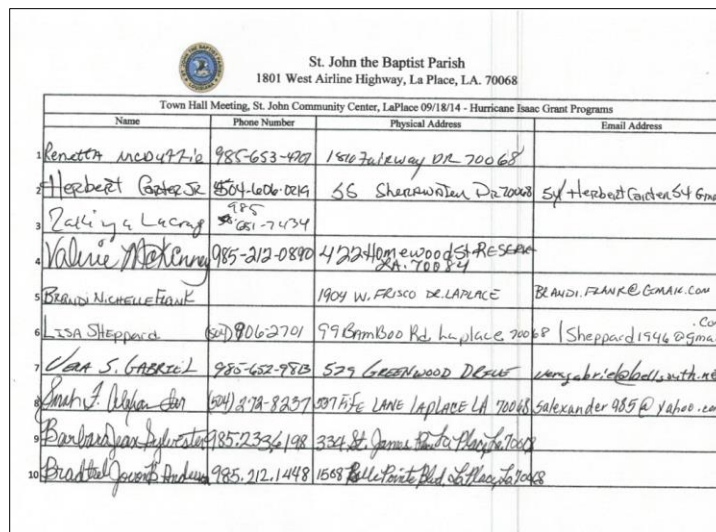 St. John the Baptist Parish
1801 West Airline Highway, La Place, LA. 70068
Town Hall Meeting, St. John Community Center, LaPlace 09/18/14 - Hurricane Isaac Grant Programs
Name Phone Number Physical Address Email Address
1 Renetta McDuffie 985-653-4707 1810 Fairway DR 70068
2 Herbert Carter Jr 504-606-0219 55 Dr 70068
985
3 651-7434
4 Valerie McKinney 985-212-0890 422 Homewood St. RESERVE
LA. 70084
5 BRANDI NICHELLE FRANK 1904 W. FRISCO DR. LAPLACE BRANDI.FRANK@GMAIL.COM
.Co
6 LISA SHeppard (504) 906-2701 99 BamBoo Rd Laplace 70068 lSheppard1946@gma
7 VERA S. GABRIEL 985-652-9813 529 GREENWOOD DRIVE
8 (504) 272-8237 LANE LAPLACE LA 70068 salexander985@yahoo.com
9 Barbara Jean Sylvester 985.233.6198 334 St. James La Place, La. 70068
10 985.212.1448 1568 Belle Pointe Blvd. LaPlace, La 70068